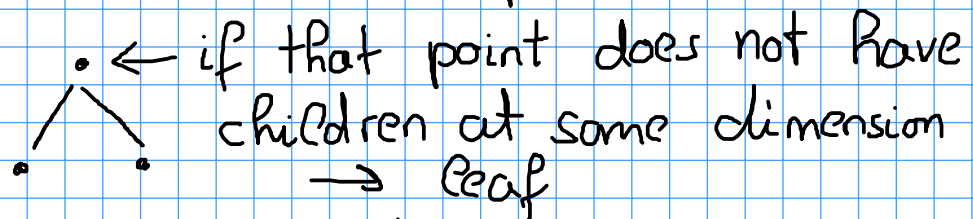 ← if that point does not have
children at some dimension
→ leaf